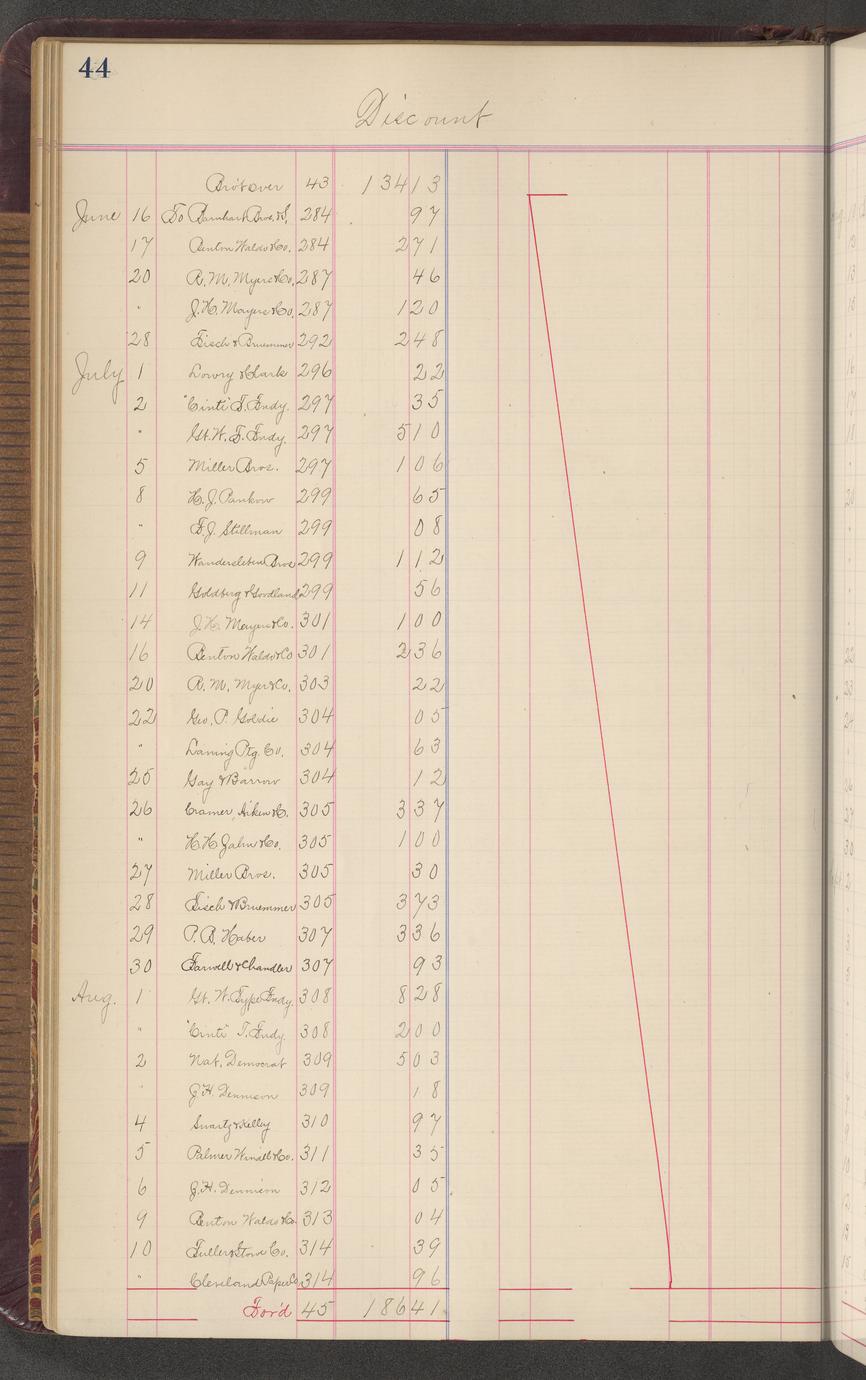 44
Discount
Bro't over 43 134 13
June 16 To Barnhart Bros. & S. 284 97
17 Benton Waldo & Co. 284 2 71
20 R. M. Myers & Co. 287 46
" J. H. Mayers & Co. 287 1 20
28 Fisch & Bruemmer 292 2 48
July 1 Lowry & Clark 296 22
2 "Cinti" T. Fndy. 297 35
" Gt. W. T. Fndy. 297 5 10
5 Miller Bros. 297 1 06
8 H. J. Pankow 299 65
" F. J. Stillman 299 08
9 Wandersleben Bros 299 1 12
11 Goldberg & Goodland 299 56
14 J. H. Mayers & Co. 301 1 00
16 Benton Waldo & Co 301 2 36
20 R. M. Myer & Co. 303 22
22 Geo. P. Goldie 304 05
" Laning Ptg. Co. 304 63
25 Gay & Barrow 304 12
26 Cramer, Aiken & C. 305 3 37
" H. H. Zahn & Co. 305 1 00
27 Miller Bros. 305 30
28 Fisch & Bruemmer 305 3 73
29 P. B. Haber 307 3 36
30 Farwell & Chandler 307 93
Aug. 1 Gt. W. Type Fndy. 308 8 28
" "Cinti" T. Fndy. 308 2 00
2 Nat. Democrat 309 5 03
" J. H. Dennison 309 18
4 Swartz & Kelley 310 97
5 Palmer & Co. 311 35
6 J. H. Dennison 312 05
9 Benton Waldo & Co. 313 04
10 Fuller & Stowe Co. 314 39
" Cleveland Paper Co. 314 96
For'd 45 186 41